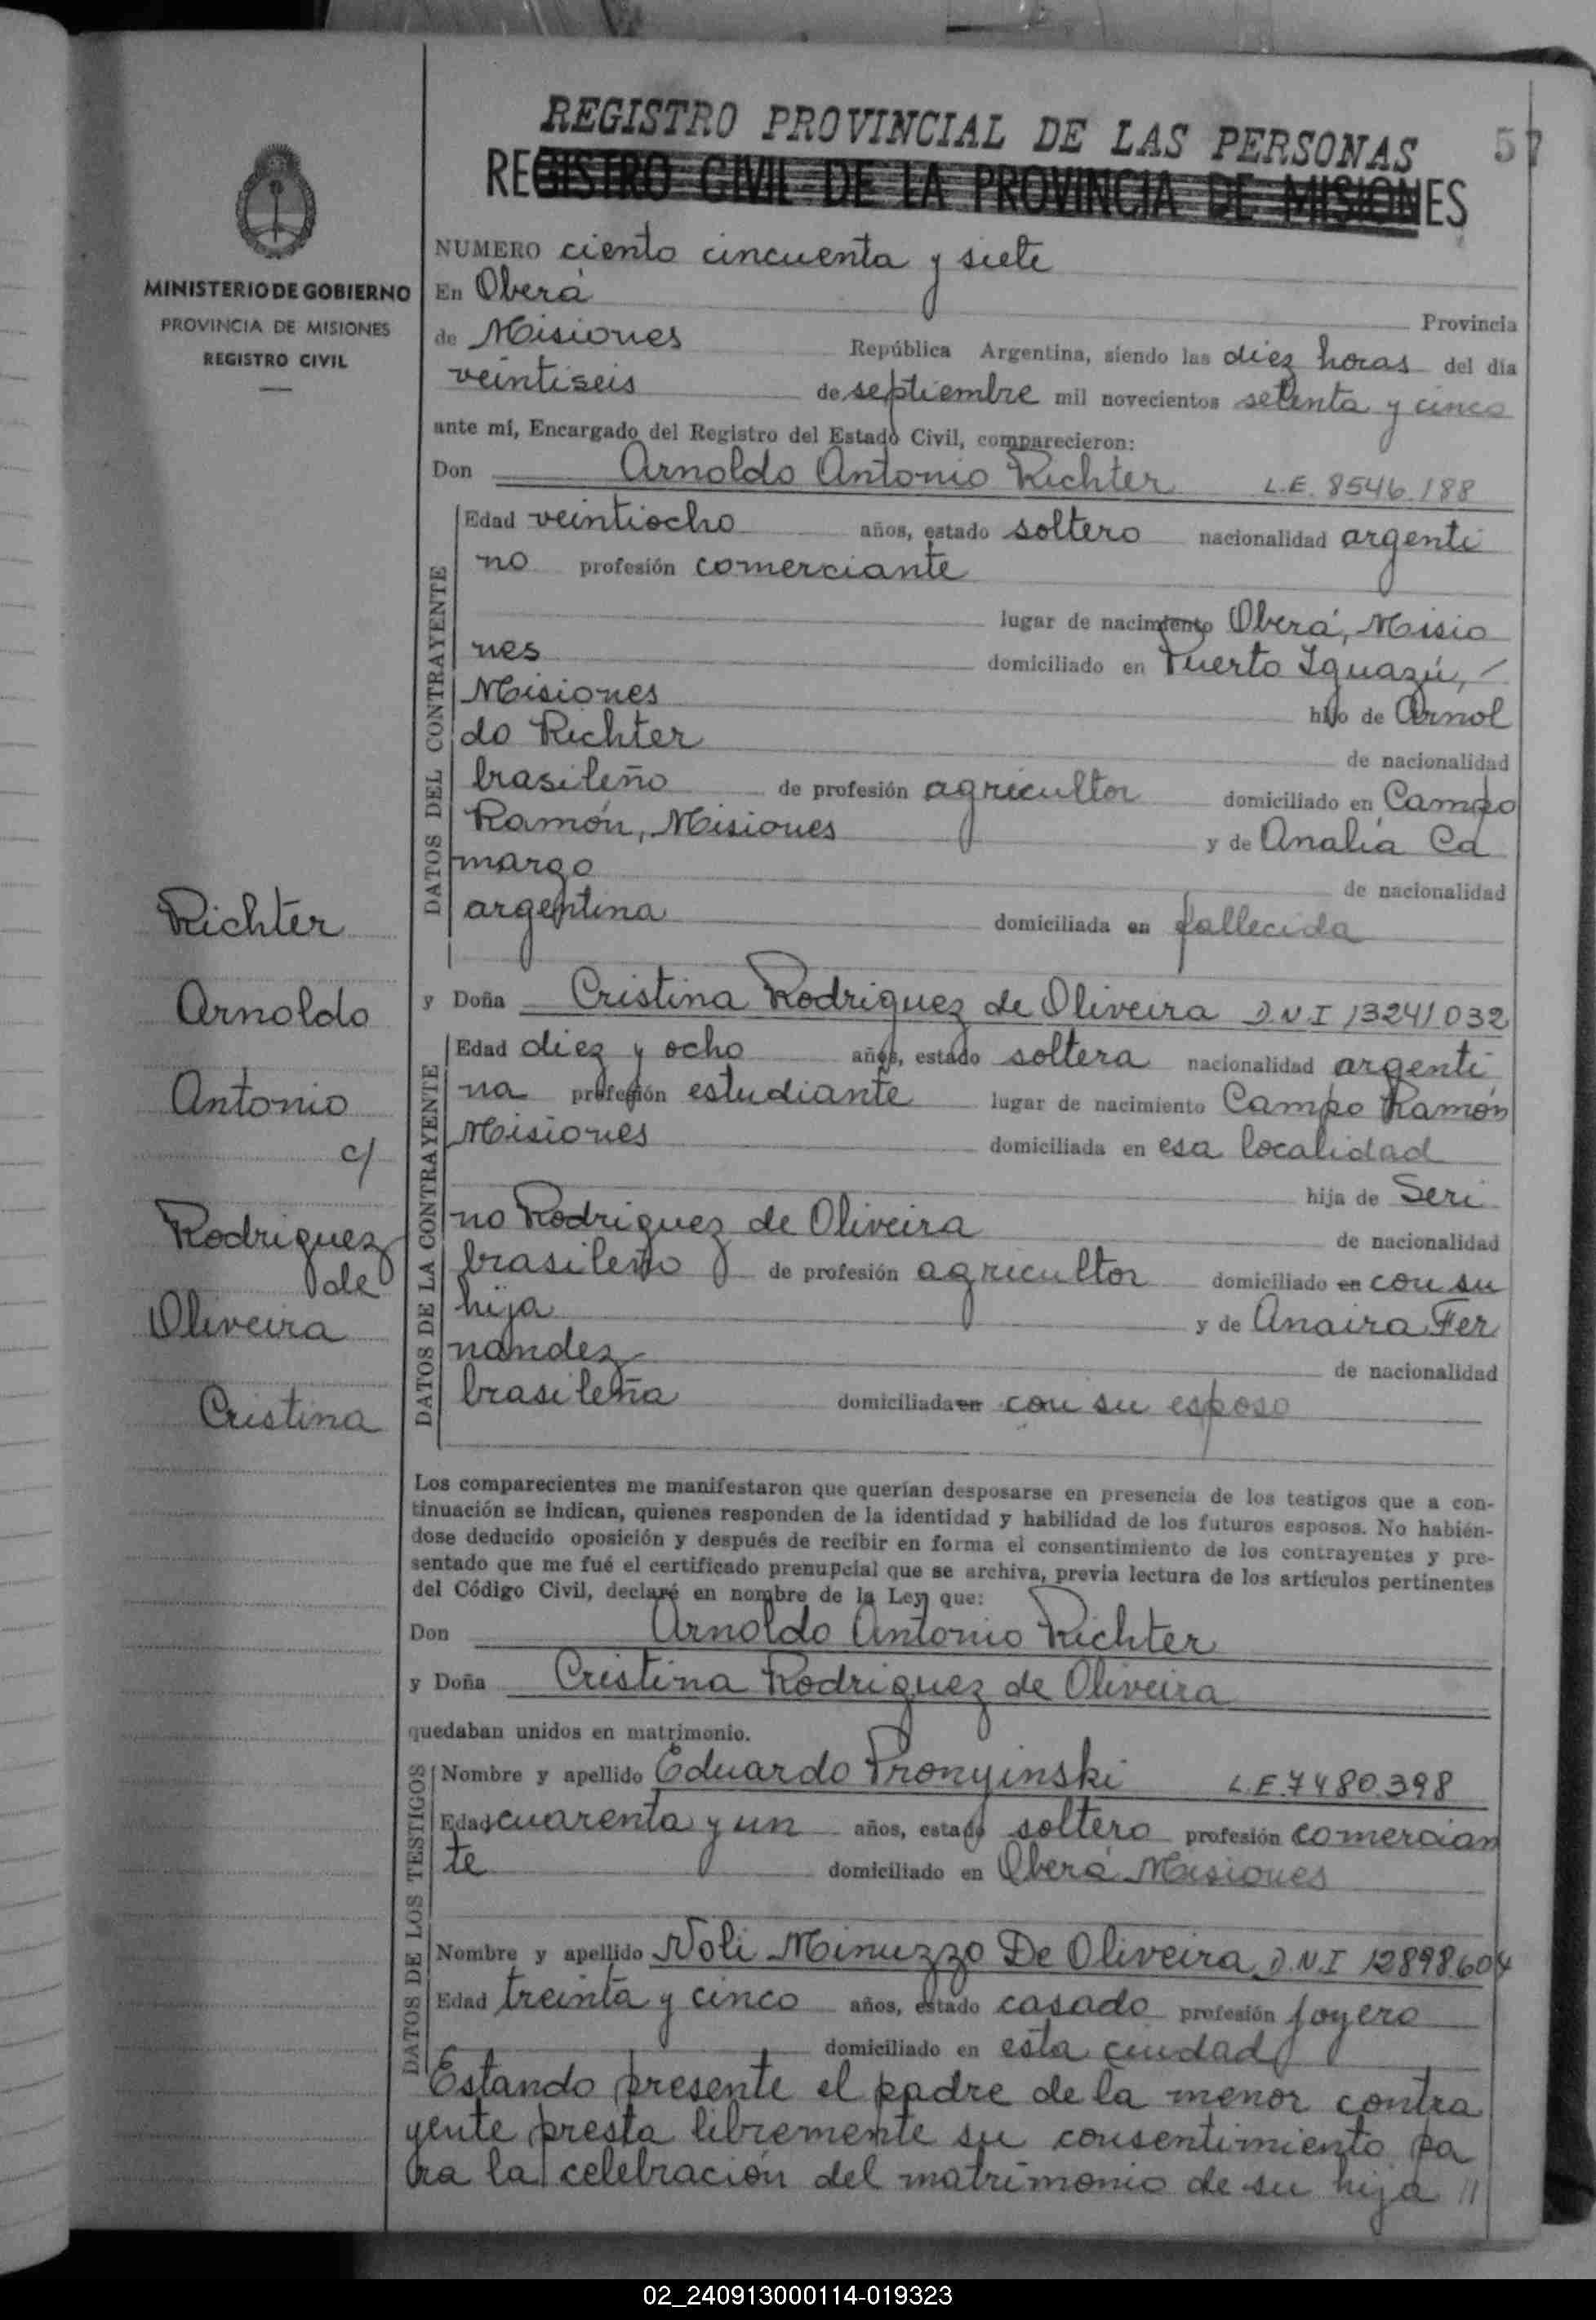 REGISTRO PROVINCIAL DE LAS PERSONAS
57
REGISTRO CIVIL DE LA PROVINCIA DE MISIONES
MINISTERIO DE GOBIERNO
PROVINCIA DE MISIONES
REGISTRO CIVIL
Richter
Arnoldo
Antonio
c/
Rodriguez
de
Oliveira
Cristina
NUMERO ciento cincuenta y siete
En Oberá
Provincia
de Misiones República Argentina, siendo las diez horas del día
veintiseis de septiembre mil novecientos setenta y cinco
ante mí, Encargado del Registro del Estado Civil, comparecieron:
Don Arnoldo Antonio Richter L.E. 8546.188
DATOS DEL CONTRAYENTE
Edad veintiocho años, estado soltero nacionalidad argenti
no profesión comerciante
lugar de nacimiento Oberá, Misio
nes domiciliado en Puerto Iguazú, /
Misiones hijo de Arnol
do Richter de nacionalidad
brasileño de profesión agricultor domiciliado en Campo
Ramón, Misiones y de Analía Ca
margo de nacionalidad
argentina domiciliada en fallecida
y Doña Cristina Rodriguez de Oliveira D.N.I 13241032
DATOS DE LA CONTRAYENTE
Edad diez y ocho años, estado soltera nacionalidad argenti
na profesión estudiante lugar de nacimiento Campo Ramón
Misiones domiciliada en esa localidad
hija de Seri
no Rodriguez de Oliveira de nacionalidad
brasileño de profesión agricultor domiciliado en con su
hija y de Anaira Fer
nandez de nacionalidad
brasileña domiciliada en con su esposo
Los comparecientes me manifestaron que querían desposarse en presencia de los testigos que a con-
tinuación se indican, quienes responden de la identidad y habilidad de los futuros esposos. No habién-
dose deducido oposición y después de recibir en forma el consentimiento de los contrayentes y pre-
sentado que me fué el certificado prenupcial que se archiva, previa lectura de los artículos pertinentes
del Código Civil, declaré en nombre de la Ley que:
Don Arnoldo Antonio Richter
y Doña Cristina Rodriguez de Oliveira
quedaban unidos en matrimonio.
DATOS DE LOS TESTIGOS
Nombre y apellido Eduardo Pronyinski L.E.7480.398
Edad cuarenta y un años, estado soltero profesión comercian
te domiciliado en Oberá Misiones
Nombre y apellido Noli Minuzzo De Oliveira D.N.I 12898.604
Edad treinta y cinco años, estado casado profesión joyero
domiciliado en esta ciudad
Estando presente el padre de la menor contra
yente presta libremente su consentimiento pa
ra la celebración del matrimonio de su hija //
02_240913000114-019323